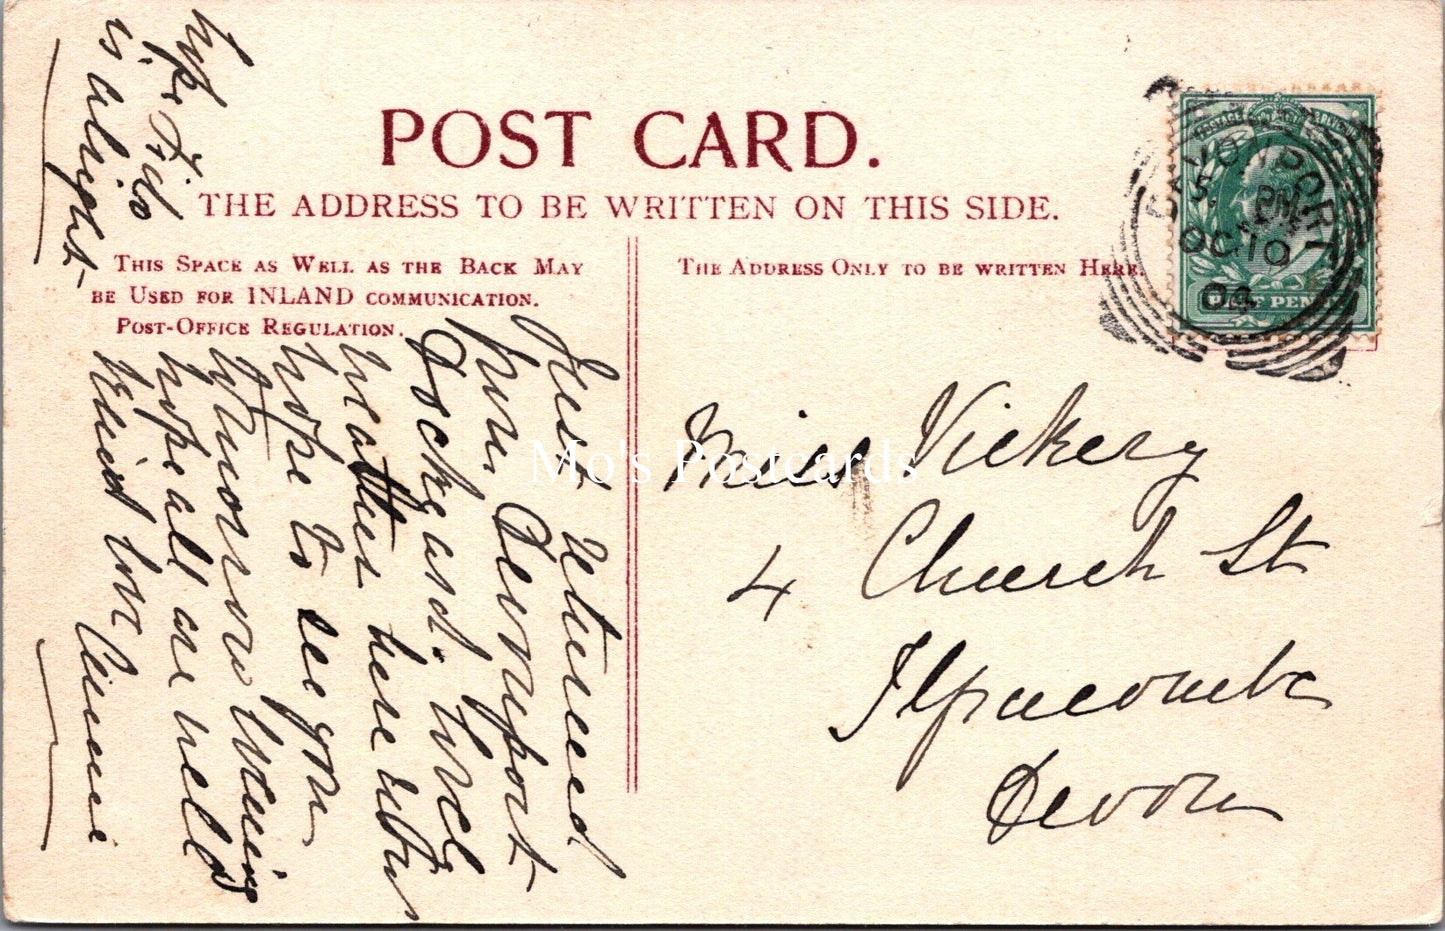 POST CARD.
THE ADDRESS TO BE WRITTEN ON THIS SIDE.
THIS SPACE AS WELL AS THE BACK MAY
BE USED FOR INLAND COMMUNICATION.
POST-OFFICE REGULATION.
THE ADDRESS ONLY TO BE WRITTEN HERE.
POSTAGE REVENUE
HALF PENNY
DEVONPORT
5 PM
OC 10
04
Miss Vickery
4 Church St
Ilfracombe
Devon
Just returned
from Devonport
Dockyard. Lovely
weather here
hope to see you
tomorrow evening
hope all are well
kind love
hope Fido
is alright
Mo's Postcards